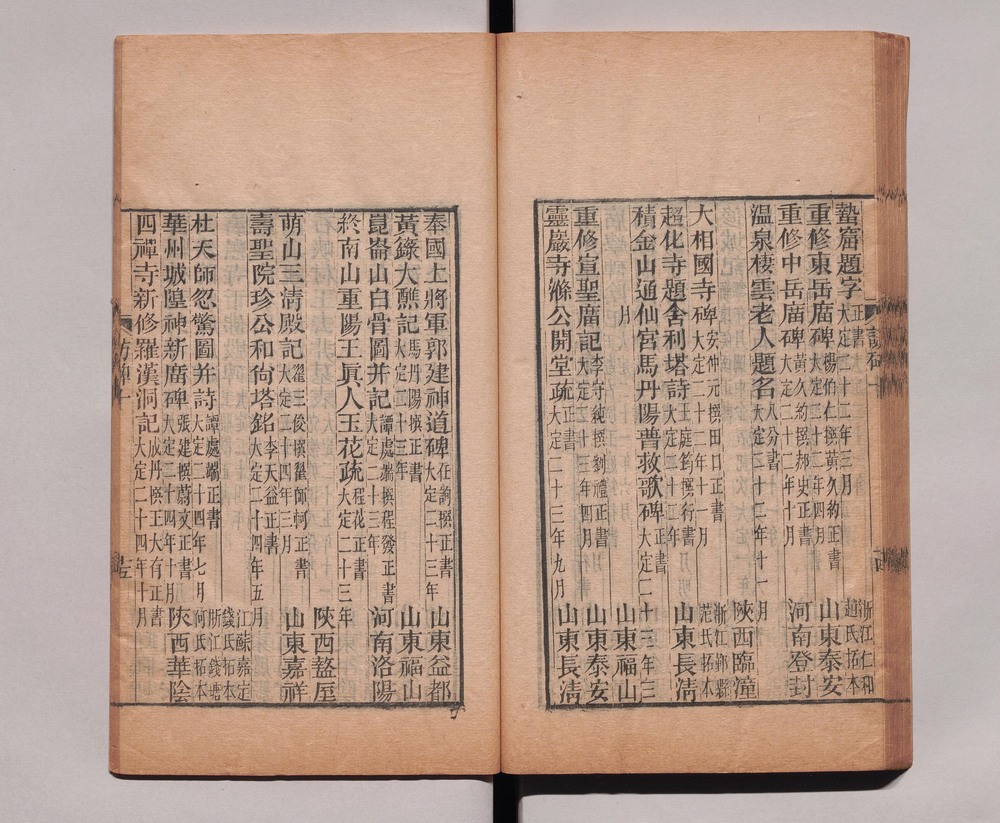 蟄窟題字 正書 大定二十二年三月 浙江仁和 趙氏拓本
重修東岳廟碑 楊伯仁撰黃久約正書 大定二十二年四月 山東泰安
重修中岳廟碑 黃久約撰郝史正書 大定二十二年十月 河南登封
溫泉棲雲老人題名 八分書 大定二十二年十一月 陝西臨潼
大相國寺碑 安仲元撰田口正書 大定二十年十一月 浙江鄞縣 范氏拓本
超化寺題舍利塔詩 王庭鈞撰行書 山東長清
積金山通仙宮馬丹陽普救歌碑 正書 大定二十三年三月 山東福山
重修宣聖廟記 李守純撰劉禮正書 大定二十三年四月 山東泰安
靈巖寺滌公開堂疏 正書 大定二十三年九月 山東長清
奉國上將軍郭建神道碑 任詢撰正書 大定二十三年 山東益都
黃籙大醮記 馬丹陽撰正書 大定二十三年 山東福山
崑崙山白骨圖并記 譚處端撰程發正書 大定二十三年 河南洛陽
終南山重陽王眞人玉花疏 程花正書 大定二十三年 陝西盩厔
萌山三清殿記 翟三俊撰翟師柯正書 大定二十四年三月 山東嘉祥
壽聖院珍公和尙塔銘 李天益正書 大定二十四年五月 江蘇嘉定 錢氏拓本
杜天師忽驚圖并詩 譚處端正書 大定二十四年七月 浙江錢塘 何氏拓本
華州城隍神新廟碑 張建撰蔚文正書 大定二十四年八月 陝西華陰
四禪寺新修羅漢洞記 成丹撰王大有正書 大定二十四年十月
訪碑